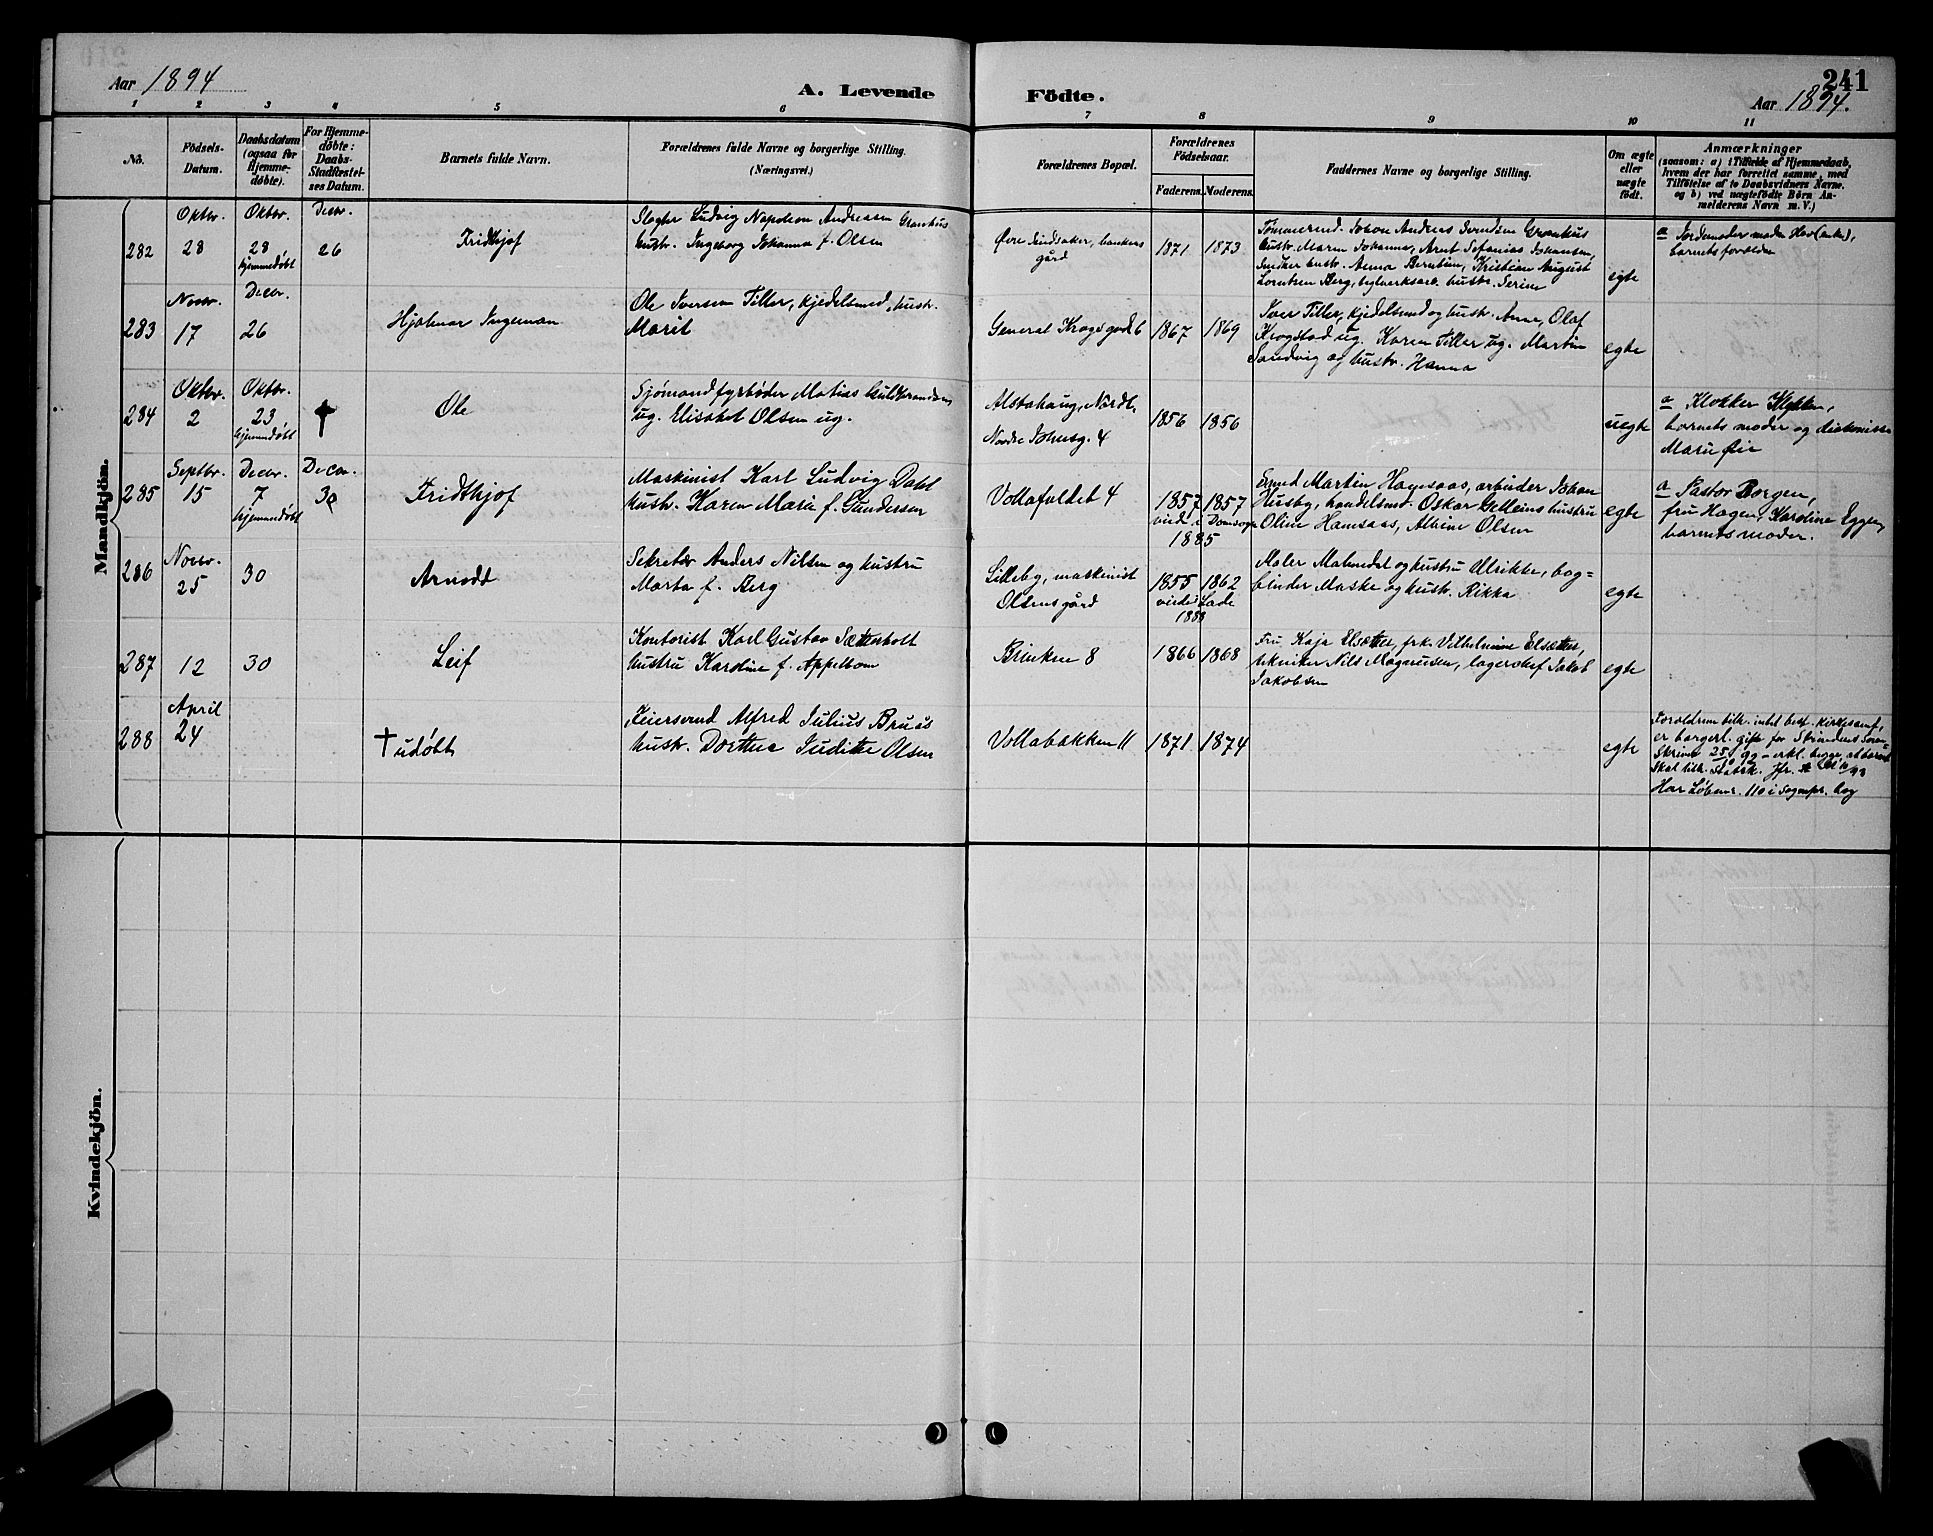 241
Aar 1894
A. Levende
Födte.
Aar 1894.
1 2 3 4 5 6 7 8 9 10 11
No.
Födsels-
Datum.
Daabsdatum
(ogsaa for
Hjemme-
döbte).
For Hjemme-
döbte:
Daabs-
Stadfæstel-
ses Datum.
Barnets fulde Navn.
Forældrenes fulde Navne og borgerlige Stilling.
(Næringsvei.)
Forældrenes Bopæl.
Forældrenes
Födselsaar.
Faderens. Moderens.
Faddernes Navne og borgerlige Stilling.
Om ægte
eller
uægte
födt.
Anmærkninger
(saasom: a) i Tilfælde af Hjemmedaab,
hvem der har forrettet samme, med
Tilföielse af to Daabsvidners Navne.
og b) ved uægtefödte Börn An-
melderens Navn m. V.)
Mandkjön.
282
Oktbr.
28
Oktbr.
28
hjemmedøbt
Decbr.
26
Fridthjof
Ludvig Napoleon Andreassen Granhus
hustr. Ingeborg Johanna f. Olsen
Øvre bankers
gård
1871 1873
Tømmermd. Johan Andreas Svendsen Granhus
hustr. Maren Johanna, Arnt Johansen,
Snedker hustr. Anna Kristian August
Lorntsen Berg, hustr. Serine
egte
a Jordemoder
barnets forældre
283
Novbr.
17
Decbr.
26
Hjalmar Ingeman
Ole Iversen Tiller, kjedelsmed, hustr.
Marit
General Krogs gade 6
1867 1869
Iver Tiller, kjedelsmed og hustr. Anne, Olaf
Krogstad ug. Karen Tiller ug. Martin
Sandvig og hustr. Hanna
egte
284
Oktbr.
2
Oktbr.
23
hjemmedøbt
†
Ole
Sjømand fyrbøder Matias Guldbrandsen
ug. Elisabet Olsen ug.
Alstahaug, Nordl.
Nordre 4
1856 1856
uegte
a Klokker
barnets moder og diakonisse
Marie Øie
285
Septbr.
15
Decbr.
7
hjemmedøbt
Decbr.
30
Fridthjof
Maskinist Karl Ludvig Dahl
hustr. Karen Marie f. Gundersen
Vollafaldet 4
1857 1857
viede i Domsogn
1885
Martin arbeider Johan
Husby, handelsmd. Oskar hustru
Oline Albine Olsen
egte
a Pastor Borgen,
fru Hagen, Karoline Eggen,
barnets moder.
286
Novbr.
25
30
Arnodt
Sekretær Anders Nilsen og hustru
Marta f. Berg
Lilleby, maskinist
Olsens gård
1855 1862
viede Lade
1888
Maler og hustru Ulrikke, bog=
binder Maske og hustr. Rikka
egte
287
12
30
Leif
Kontorist Karl Gustav
hustru Karoline f. Appelbom
Brinken 8
1866 1868
Fru Kaja Elsetter, frk. Vilhelmine Elsetter,
tekniker Nils Magnusen, lagerchef Jakob
Jakobsen
egte
288
April
24
† udøbt
Feiersvend Alfred Julius Bruus
hustr. Dorthea Judithe Olsen
Vollabakken 11
1871 1874
egte
Forældrene tilh. intet best. kirkesamf,
er borgerl. gifte for
25/10 92 - erkl. begge at barnet
skal tilh. Statsk.
Har Løbenr. 110 i Sognepr. bog
Kvindekjön.